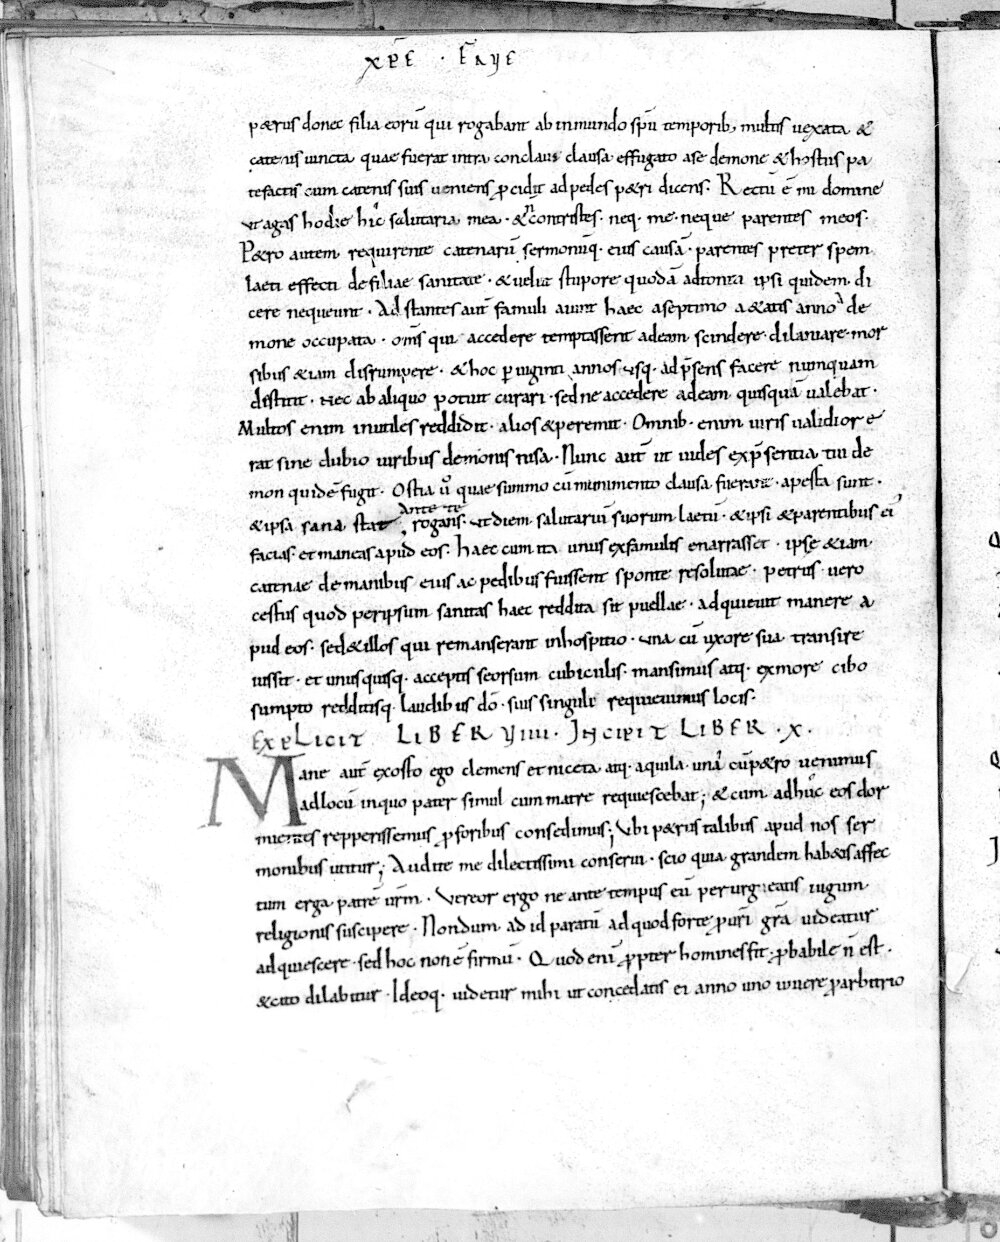 xp̄e · f̄aye
p&rus donec filia eorū qui rogabant ab inmundo sp̄u temporib; multis uexata &
catenis uincta quae fuerat intra conclaue clausa effugato a se demone & hostiis pa
tefactis cum catenis suis ueniens ꝓcidit ad pedes p&ri dicens: Rectū ē mi domine
ut agas hodie hic salutaria mea · & contristes · neq· me · neque parentes meos·
P&ro autem requirente catenarū sermonūq· eius causā · parentes preter spem
laeti effecti de filiae sanitate · & uelut stupore quodā adtoniti ipsi quidem di
cere nequeunt · Adstantes aut̄ famuli aiunt haec a septimo a&atis anno a de
mone occupata · om̄s qui accedere temptassent ad eam scindere· dilaniare· mor
sibus &iam disrumpere · & hoc ꝑ uiginti annos usq· ad p̄sens facere numquam
distitit · nec ab aliquo potuit curari · sed ne accedere ad eam quisquā ualebat ·
Multos enim inutiles reddidit · alios & peremit · Omnib· enim uiris ualidior e
rat sine dubio uiribus demonis fusa · Nunc aut̄ ut uides ex p̄sentia tui de
mon quidē fugit · Ostia u° quae summo cū munimento clausa fuerant · aperta sunt ·
& ipsa sana stat ante te
rogans · ut diem salutariū suorum laetū · & ipsi & parentibus ei'
facias · et maneas apud eos · haec cum ita unus ex famulis enarrasset · ipse &iam
catenae de manibus eius ac pedibus fuissent sponte resolutae · petrus uero
certus quod per ipsum sanitas haec reddita sit puellae · adquieuit manere a
pud eos · sed & illos qui remanserant in hospitio · una cū uxore sua transire
iussit · et unusquisq· acceptis seorsum cubiculis · mansimus atq· ex more cibo
sumpto redditisq· laudibus dō · suis singuli requieuimus locis·
Explicit LIBER VIIII · Incipit LIBER · X ·
Mane aut̄ exorto ego clemens et niceta atq· aquila · una cū p&ro uenimus
ad locū in quo pater simul cum matre requiescebat; & cum adhuc eos dor
mientes repperissemus ꝓ foribus consedimus; Ubi p&rus talibus apud nos ser
monibus utitur; Audite me dilectissimi conserui · scio quia grandem hab&is affec
tum erga patrē urm̄ · Uereor ergo ne ante tempus eū perurgueatis iugum
religionis suscipere · Nondum ad id paratū ad quod forte ꝓ uri gr̄a uideatur
adquiescere · sed hoc non ē firmū · Quod enī ꝓpter homines fit · ꝓbabile n̄ est ·
& cito dilabitur · Ideoq· uidetur mihi ut concedatis ei anno uno uiuere ꝓ arbitrio